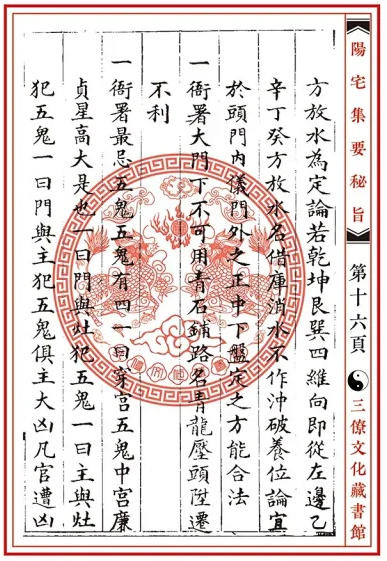 陽宅集要秘旨
第十六頁
三僚文化藏書館
方放水為定論若乾坤艮巽四維向即從左邊乙
辛丁癸方放水名借庫消水不作沖破養位論宜
於頭門內儀門外之正中下盤定之方能合法
一衙署大門下不可用青石鋪路名青龍壓頭陞遷
不利
一衙署最忌五鬼五鬼有四一曰穿宮五鬼中宮廉
貞星高大是也一曰門與灶犯五鬼一曰主與灶
犯五鬼一曰門與主犯五鬼俱主大凶凡官遭凶